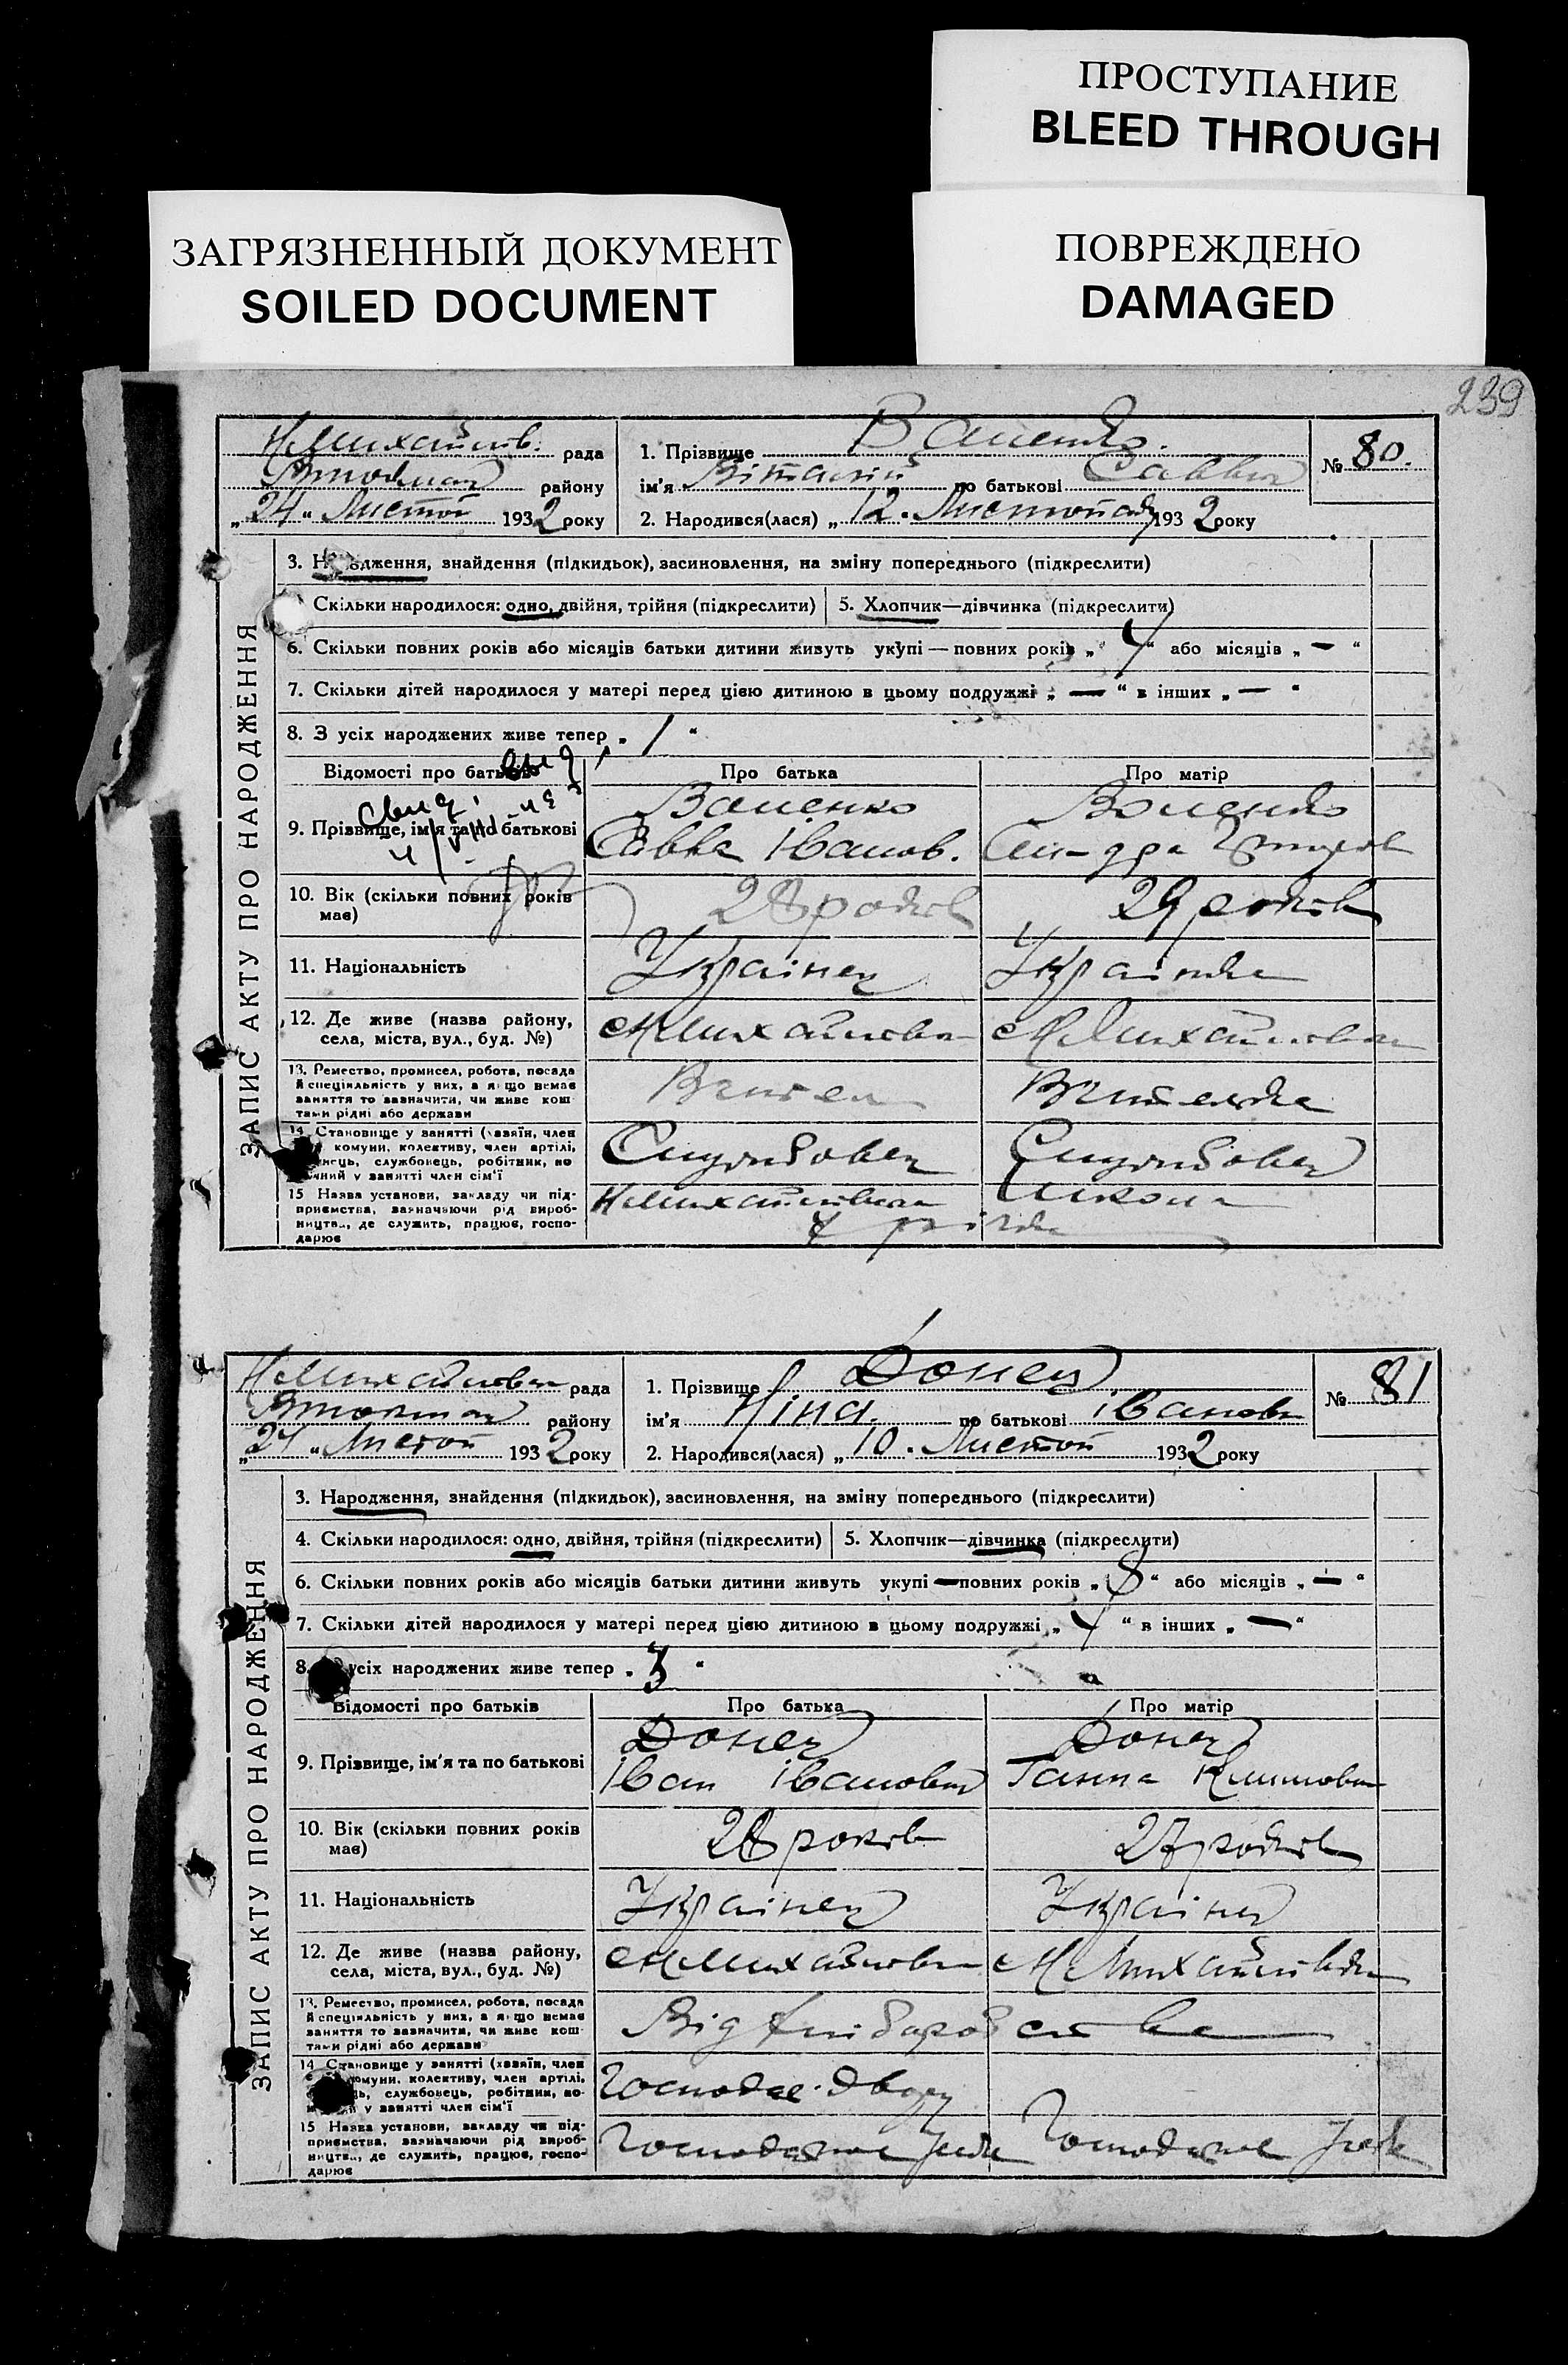 ПРОСТУПАНИЕ
BLEED THROUGH
ЗАГРЯЗНЕННЫЙ ДОКУМЕНТ
SOILED DOCUMENT
ПОВРЕЖДЕНО
DAMAGED
239
ЗАПИС АКТУ ПРО НАРОДЖЕННЯ
Н Михайлів. рада
району
„24“ Листоп 1932 року
1. Прізвище
ім'я Віталій по батькові Саввич
2. Народився(лася) „12. Листопада 1932 року
№ 80.
3. Народження, знайдення (підкидьок), засиновлення, на зміну попереднього (підкреслити)
Скільки народилося: одно, двійня, трійня (підкреслити)
5. Хлопчик—дівчинка (підкреслити)
6. Скільки повних років або місяців батьки дитини живуть укупі — повних років „4“ або місяців „—“
7. Скільки дітей народилося у матері перед цією дитиною в цьому подружжі „—“ в інших „—“
8. З усіх народжених живе тепер „1“
Відомості про батьків
Про батька
Про матір
9. Прізвище, ім'я та по батькові
Ваценко
Савва Іванов.
10. Вік (скільки повних років має)
28 років
29 років
11. Національність
Українец
Українка
12. Де живе (назва району, села, міста, вул., буд. №)
Н Михайлівка
Н Михайлівка
13. Ремество, промисел, робота, посада й спеціяльність у них, а якщо немає заняття то зазначити, чи живе коштами рідні або держави
Вчител
Вчителька
14. Становище у занятті (хазяїн, член комуни, колективу, член артілі, службовець, робітник, член сім'ї
Службовец
Службовец
15 Назва установи, закладу чи підприємства, зазначаючи рід виробництва, де служить, працює, господарює
Н Михайлівська школа
ЗАПИС АКТУ ПРО НАРОДЖЕННЯ
Н Михайлівка рада
району
„24“ Листоп 1932 року
1. Прізвище Донец
ім'я Ніна. по батькові Івановн
2. Народився(лася) „10. Листоп 1932 року
№ 81
3. Народження, знайдення (підкидьок), засиновлення, на зміну попереднього (підкреслити)
4. Скільки народилося: одно, двійня, трійня (підкреслити)
5. Хлопчик—дівчинка (підкреслити)
6. Скільки повних років або місяців батьки дитини живуть укупі — повних років „8“ або місяців „—“
7. Скільки дітей народилося у матері перед цією дитиною в цьому подружжі „4“ в інших „—“
8. усіх народжених живе тепер „3“
Відомості про батьків
Про батька
Про матір
9. Прізвище, ім'я та по батькові
Донец
Іван Іванович
Донец
Ганна Климовн
10. Вік (скільки повних років має)
28 років
27 років
11. Національність
Українец
12. Де живе (назва району, села, міста, вул., буд. №)
Н Михайлівк
Н Михайлівка
13. Ремество, промисел, робота, посада й спеціяльність у них, а якщо немає заняття то зазначити, чи живе коштами рідні або держави
Від хліборобства
14 Становище у занятті (хазяїн, член комуни, колективу, член артілі, службовець, робітник, у занятті член сім'ї
15 Назва установи, закладу чи підприємства, зазначаючи рід виробництва, де служить, працює, господарює